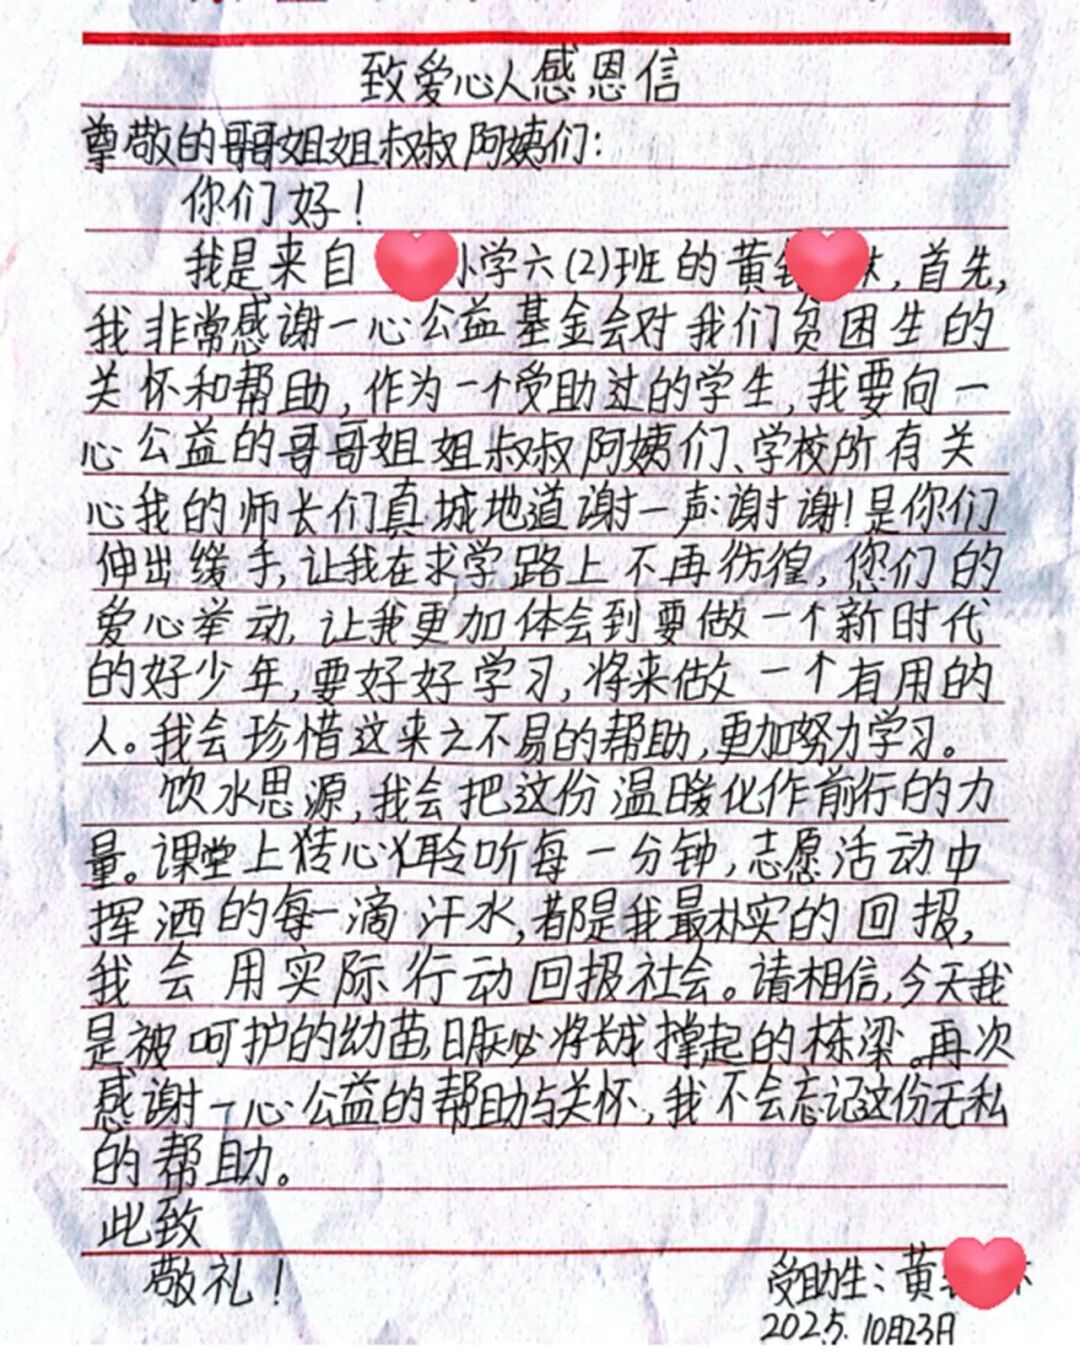 致爱心人感恩信
尊敬的哥哥姐姐叔叔阿姨们:
你们好!
我是来自 小学六(2)班的黄 ,首先,
我非常感谢一心公益基金会对我们贫困生的
关怀和帮助,作为一个受助过的学生,我要向一
心公益的哥哥姐姐叔叔阿姨们、学校所有关
心我的师长们真城地道谢一声:谢谢!是你们
伸出缓手,让我在求学路上不再彷徨,您们的
爱心举动,让我更加体会到要做一个新时代
的好少年,要好好学习,将来做一个有用的
人。我会珍惜这来之不易的帮助,更加努力学习。
饮水思源,我会把这份温暖化作前行的力
量。课堂上 心 聆听每一分钟,志愿活动中
挥洒的每一滴汗水,都是我最朴实的回报,
我会用实际行动回报社会。请相信,今天我
是被呵护的幼苗,明天必将长成撑起的栋梁。再次
感谢一心公益的帮助与关怀,我不会忘记这份无私
的帮助。
此致
敬礼!
受助生:黄
2025.10月23日